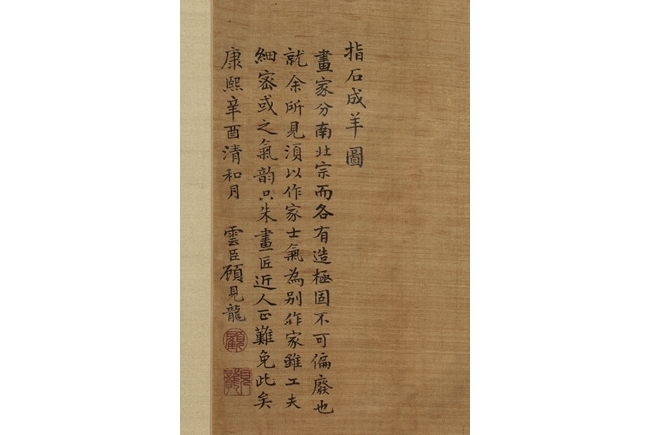 指石成羊圖
畫家分南北宗而各有造極固不可偏廢也
就余所見須以作家士氣為別作家雖工夫
細密或乏氣韵只朱畫匠近人正難免此矣
康熙辛酉清和月 雲臣顧見龍